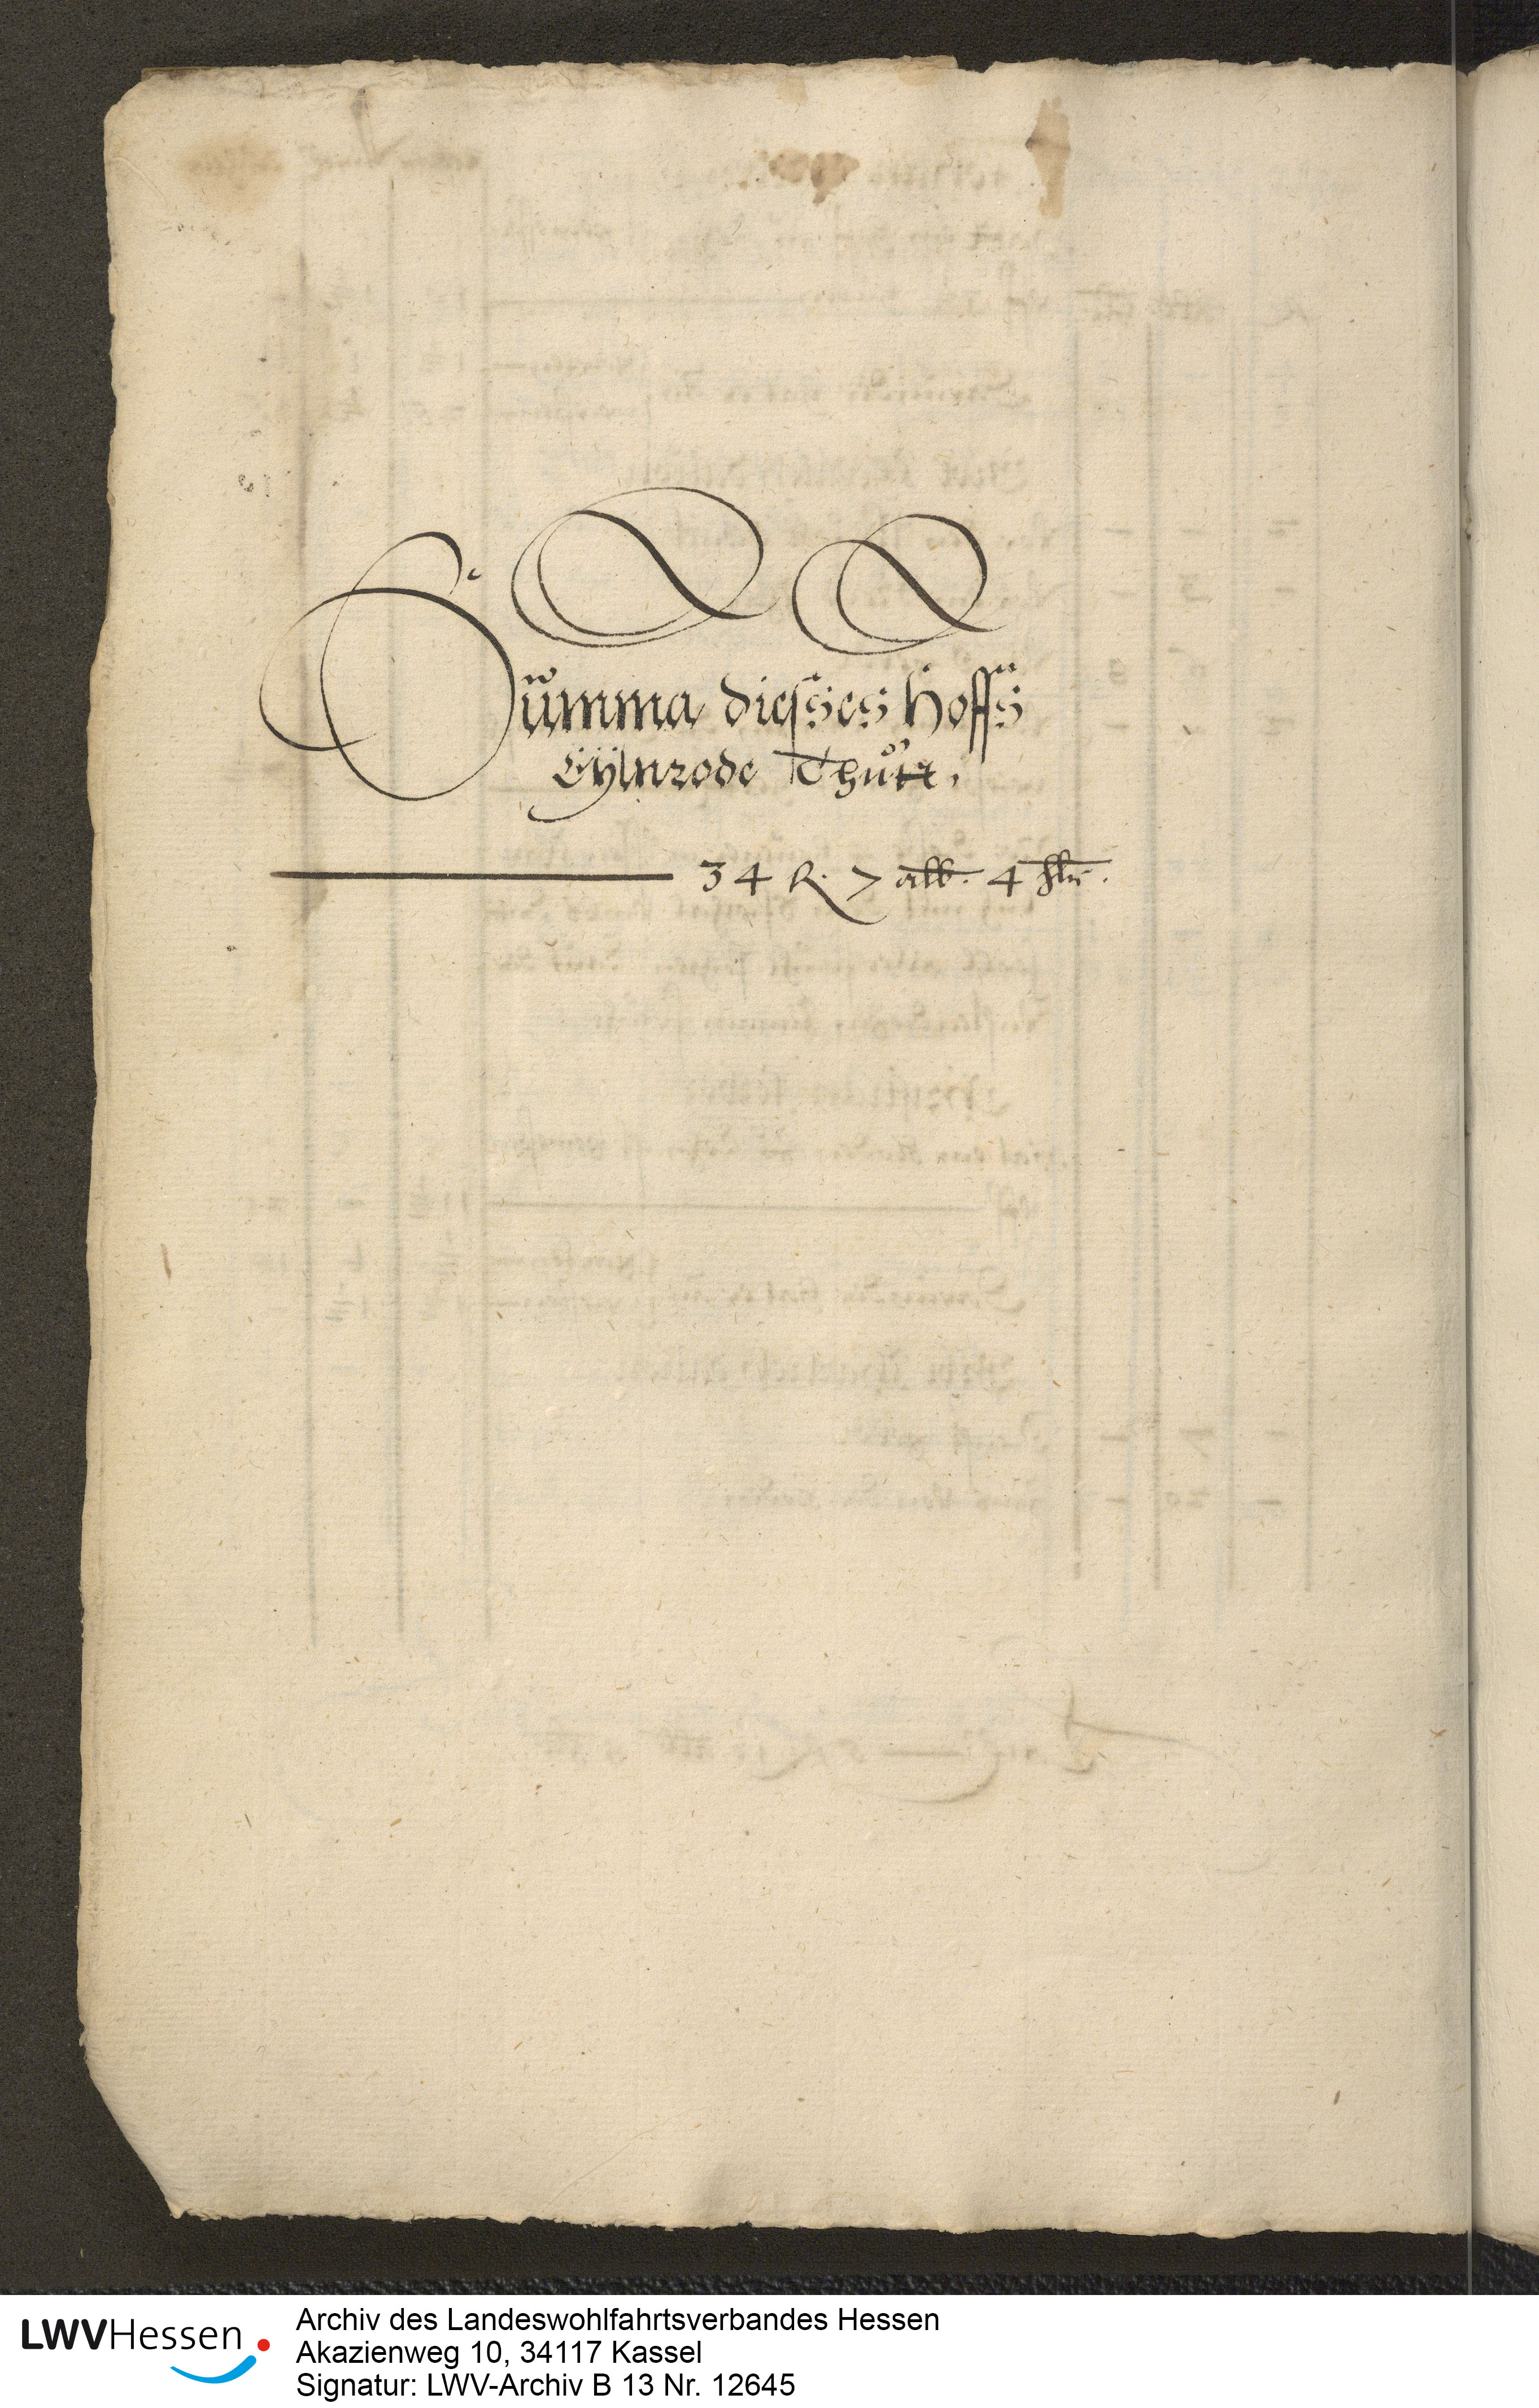 Summa dieses Hoffs
Eÿlnrode Thutt,
34 R. 7 alb. 4 hlr.
LWVHessen
Archiv des Landeswohlfahrtsverbandes Hessen
Akazienweg 10, 34117 Kassel
Signatur: LWV-Archiv B 13 Nr. 12645